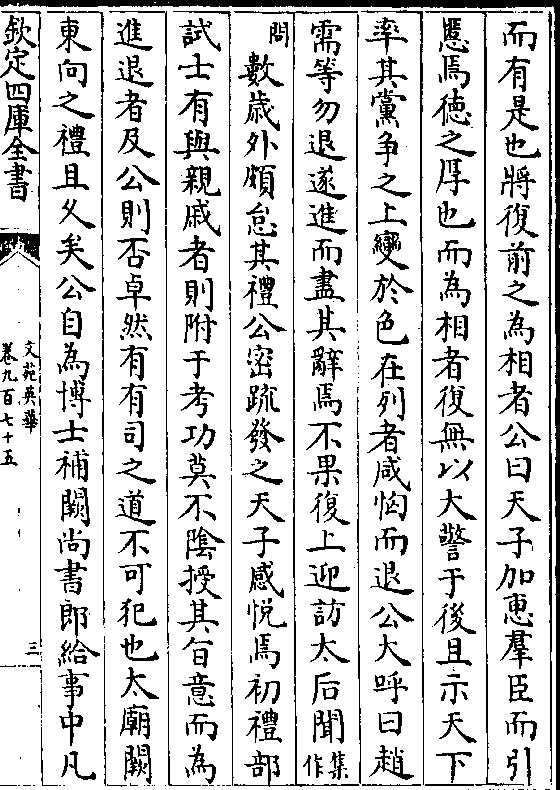 而有是也將復前之為相者公曰天子加惠羣臣而引
慝焉徳之厚也而為相者復無以大警于後且示天下
率其黨争之上變於色在列者咸恟而退公大呼曰趙
需等勿退遂進而盡其辭焉不果復上迎訪太后聞集作
問數歳外頗怠其禮公密疏發之天子感悦焉初禮部
試士有與親戚者則附于考功莫不隂授其㫖意而為
進退者及公則否卓然有有司之道不可犯也太廟闕
東向之禮且乆矣公自為博士補闕尚書郎給事中凡
欽定四庫全書
文苑英華
卷九百七十五
三